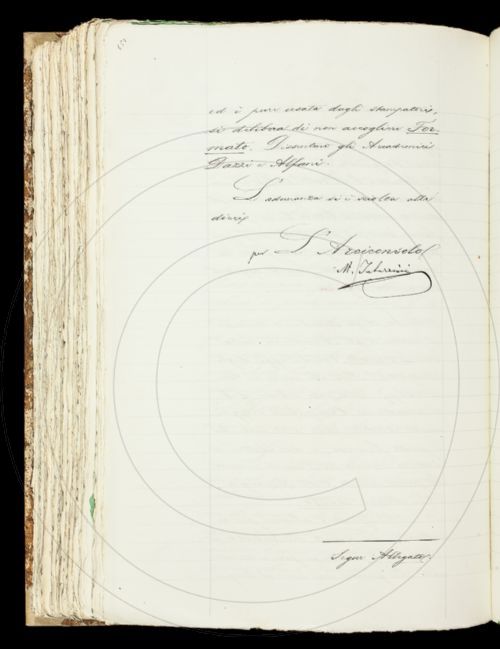 ed è pure usata dagli stampatori,
si delibera di non accogliere For-
mato. Dissentono gli Accademici
Dazzi e Alfani.
L'adunanza si è sciolta alle
dieci
per L'Arciconsolo
M. Tabarrini
Segue Allegato